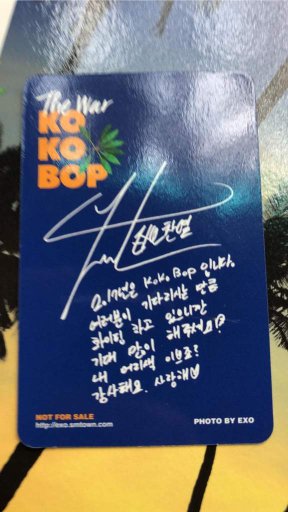 The War
KO
KO
BOP
엑소 찬열
2017년은 KoKo Bop 입니다.
여러분이 기다리신 만큼
화이팅 하고 있으니깐
기대 많이 해주세요!?
내 여리색 이쁘죠?
감사해요. 사랑해♡
NOT FOR SALE
http://exo.smtown.com
PHOTO BY EXO